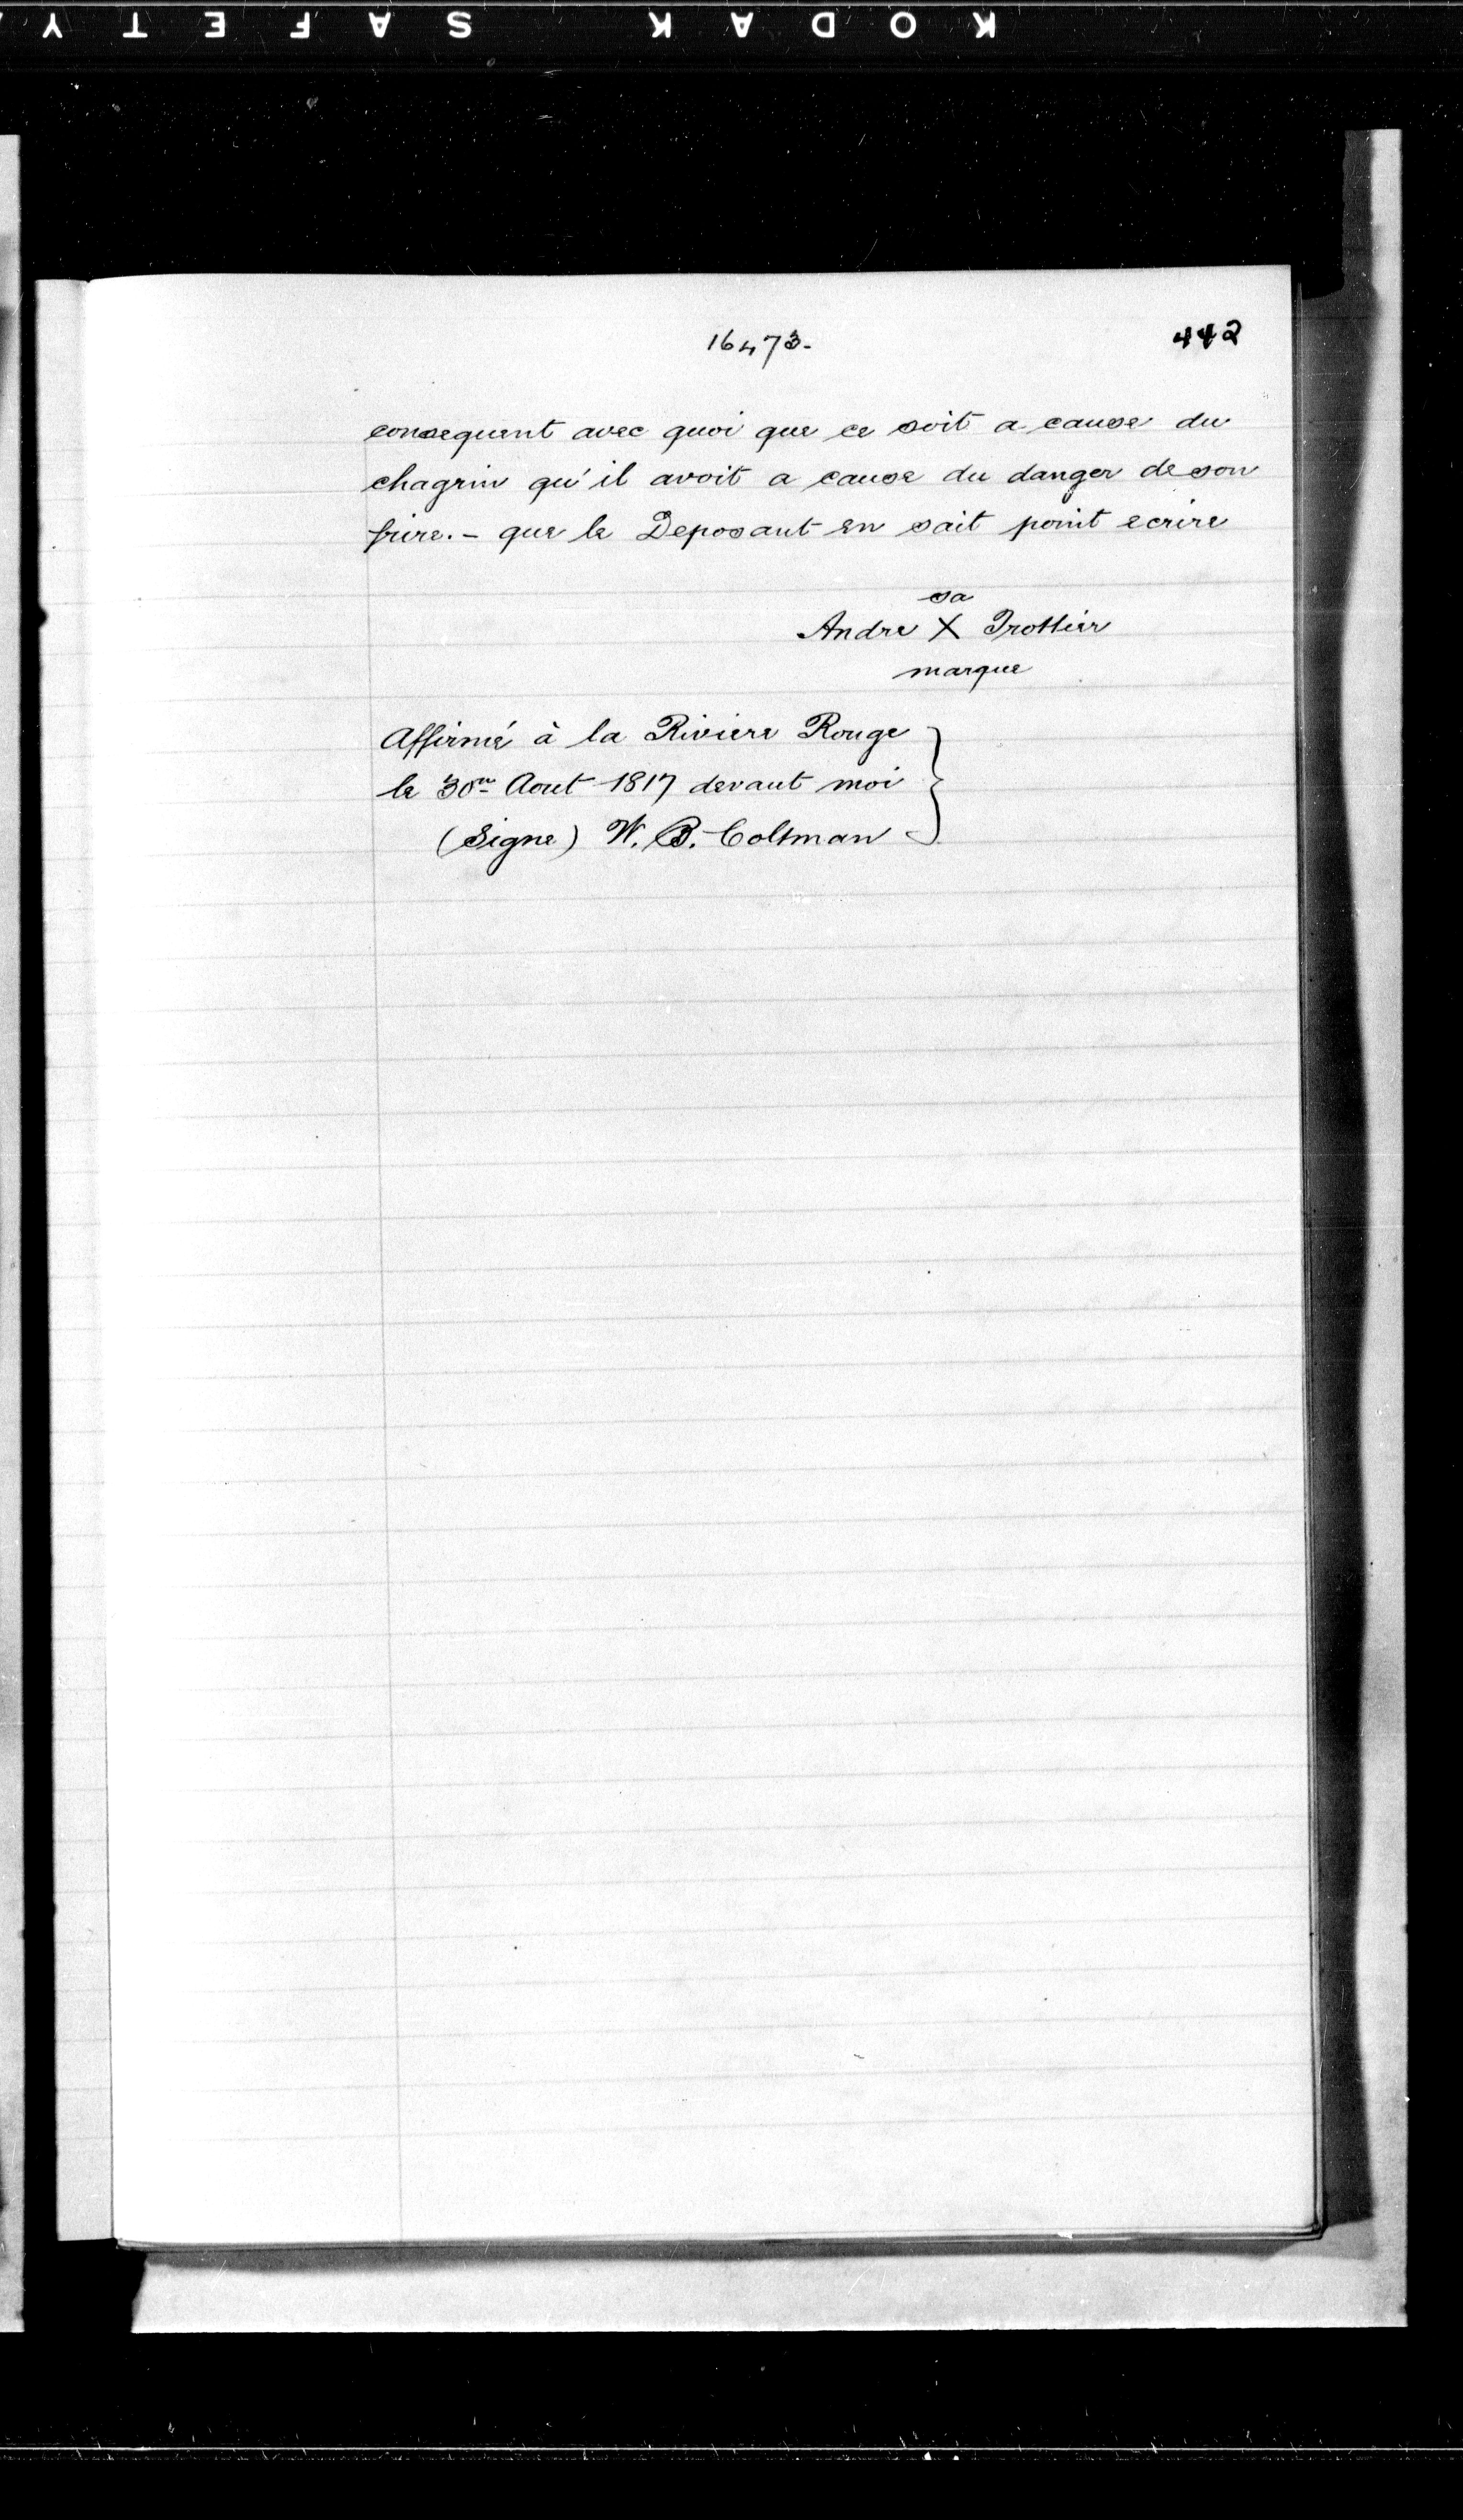 KODAK SAFETY
16473-
442
consequent avec quoi que ce soit a cause du
chagrin qu'il avoit a cause du danger de son
frire. - que le Deposant en sait point ecrire
sa
Andre X Trottier
marque
Affirmé à la Riviere Rouge
le 30me Aout 1817 devant moi
(Signe) W. B. Coltman